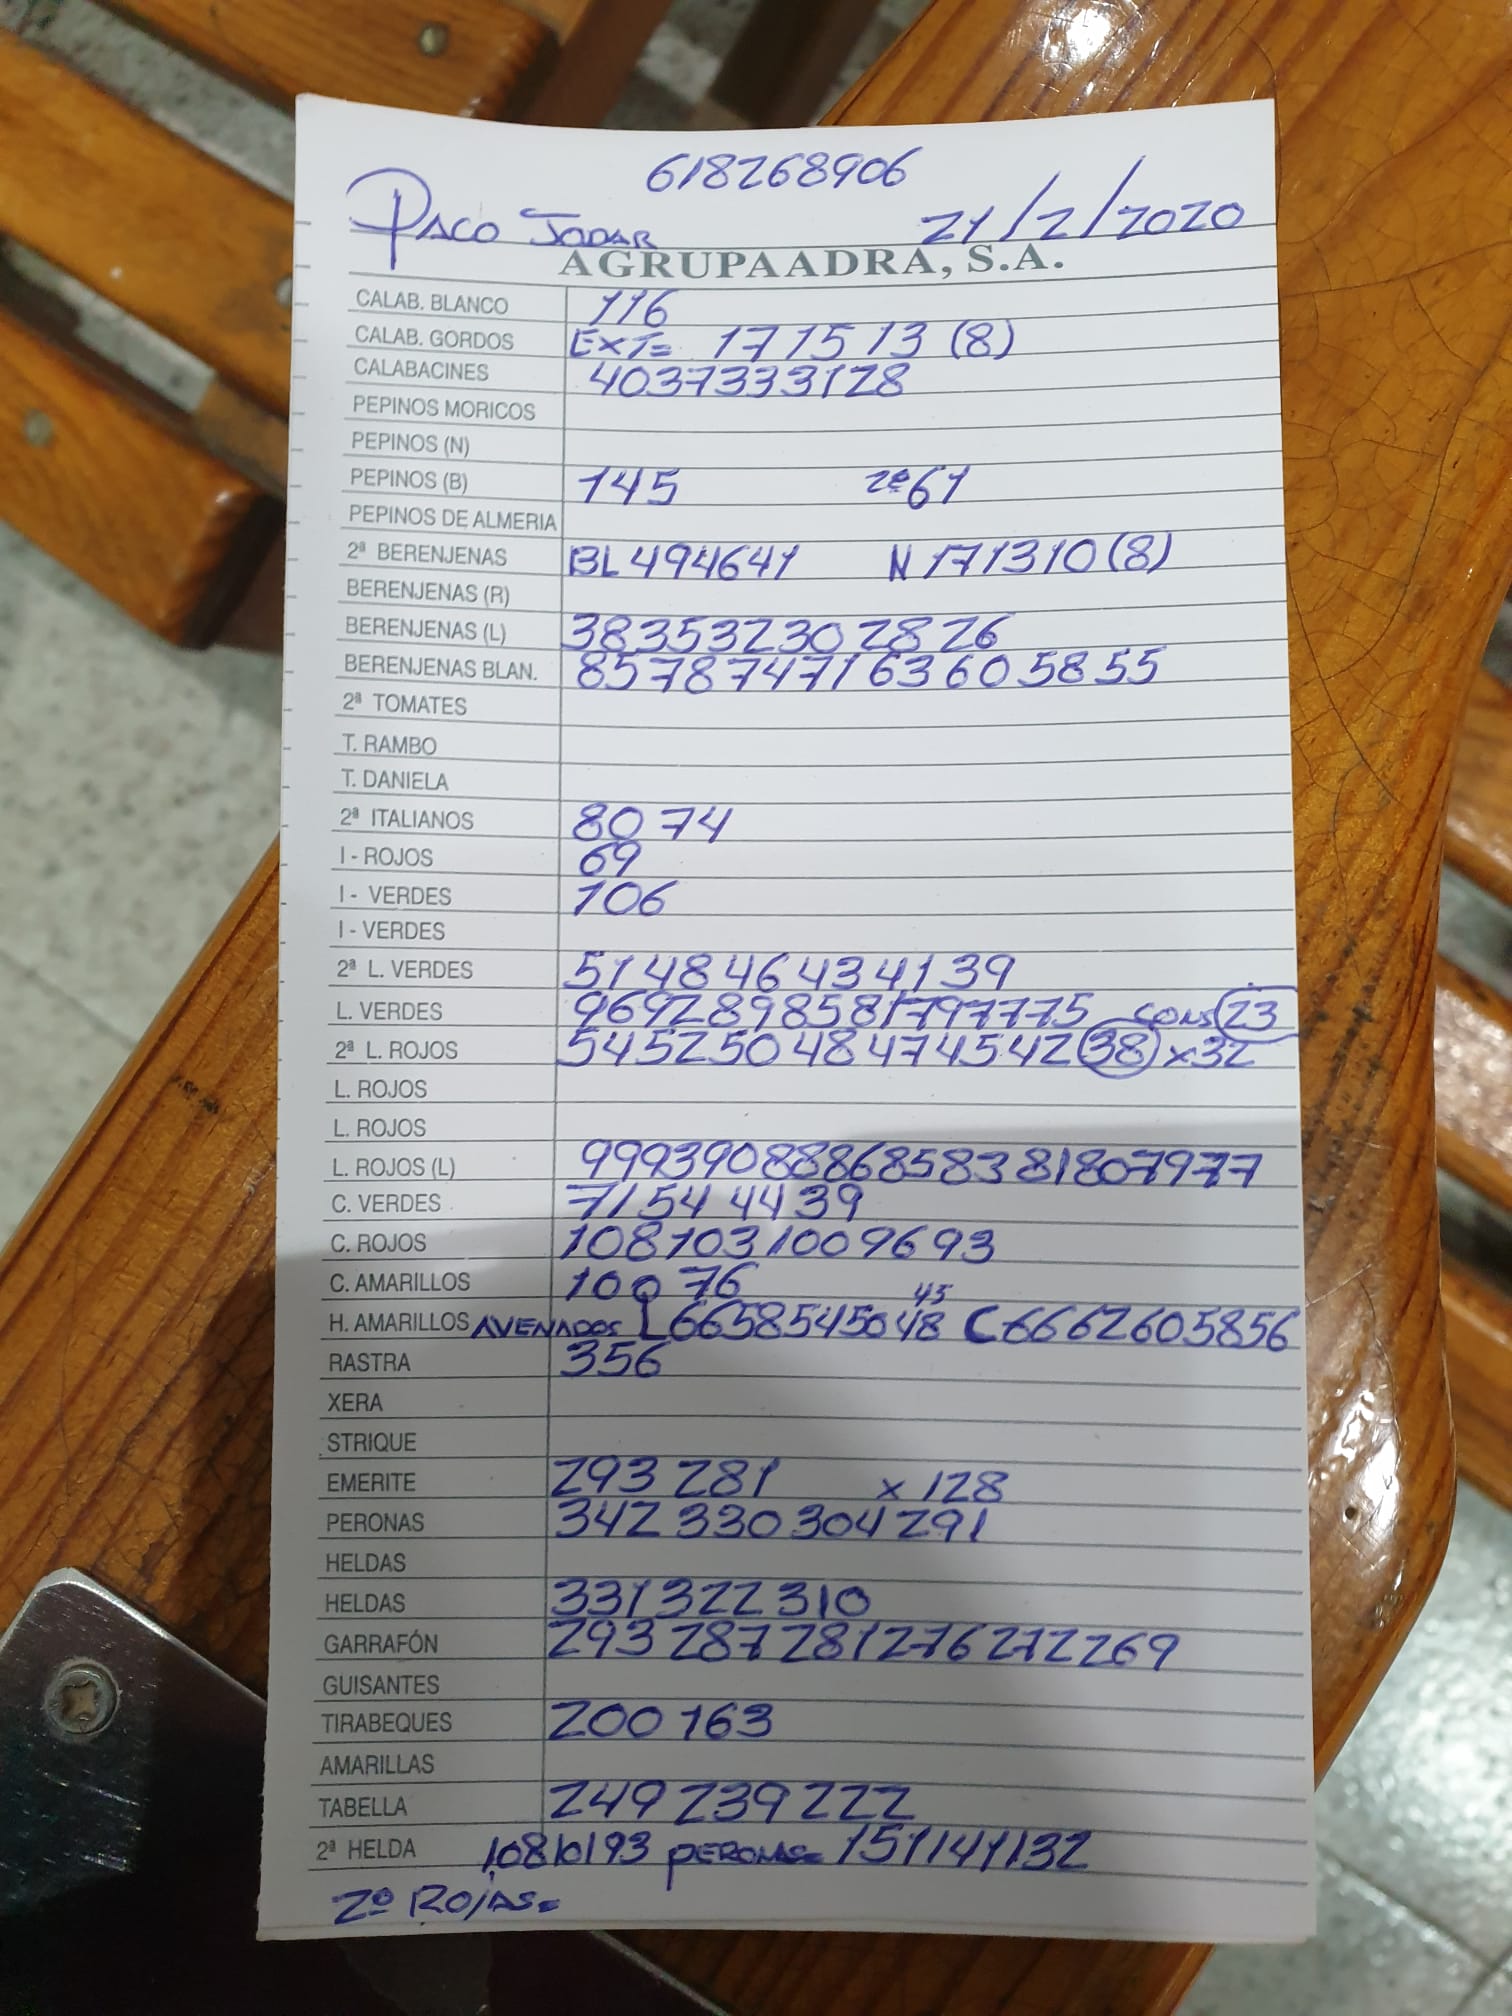 618268906
PACO JODAR 21/2/2020
AGRUPAADRA, S.A.
CALAB. BLANCO 116
CALAB. GORDOS EXT= 17 15 13 (8)
CALABACINES 40 37 33 31 28
PEPINOS MORICOS
PEPINOS (N)
PEPINOS (B) 145 2ª 61
PEPINOS DE ALMERIA
2ª BERENJENAS BL 49 46 41 N 17 13 10 (8)
BERENJENAS (R)
BERENJENAS (L) 38 35 32 30 28 26
BERENJENAS BLAN. 85 78 74 71 63 60 58 55
2ª TOMATES
T. RAMBO
T. DANIELA
2ª ITALIANOS 80 74
I - ROJOS 69
I - VERDES 106
I - VERDES
2ª L. VERDES 51 48 46 43 41 39
L. VERDES 96 92 89 85 81 79 77 75 CONS 23
2ª L. ROJOS 54 52 50 48 47 45 42 38 x32
L. ROJOS
L. ROJOS
L. ROJOS (L) 99 93 90 88 86 85 83 81 80 79 77
C. VERDES 71 54 44 39
C. ROJOS 108 103 100 96 93
C. AMARILLOS 100 76
H. AMARILLOS AVENADOS L 66 58 54 50 48 45 C 66 62 60 58 56
RASTRA 356
XERA
STRIQUE
EMERITE 293 281 x 128
PERONAS 342 330 304 291
HELDAS
HELDAS 331 322 310
GARRAFÓN 293 287 281 276 272 269
GUISANTES
TIRABEQUES 200 163
AMARILLAS
TABELLA 249 239 222
2ª HELDA 108 101 93 PERONAS= 151 141 132
2º ROJAS=